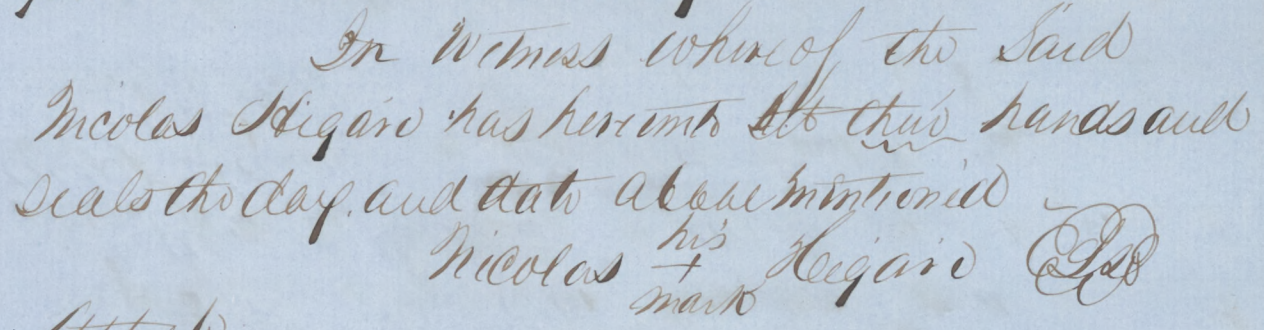 In Witness whereof the Said
Nicolas Higare has hereunto set their hands and
seals the day. and date above mentioned
his
Nicolas + Heigare
mark